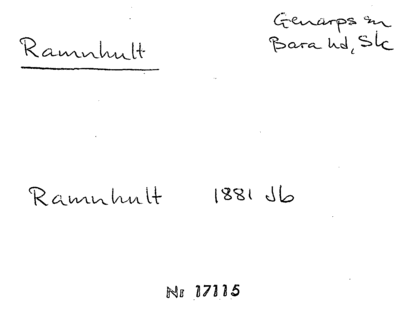 Ramnhult
Genarps sn
Bara hd, Sk
Ramnhult 1881 Jb
Nr 17115